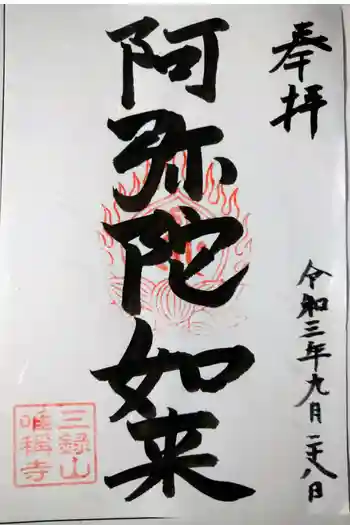 奉拝
阿弥陀如来
令和三年九月二十八日
三録山
唯稱寺